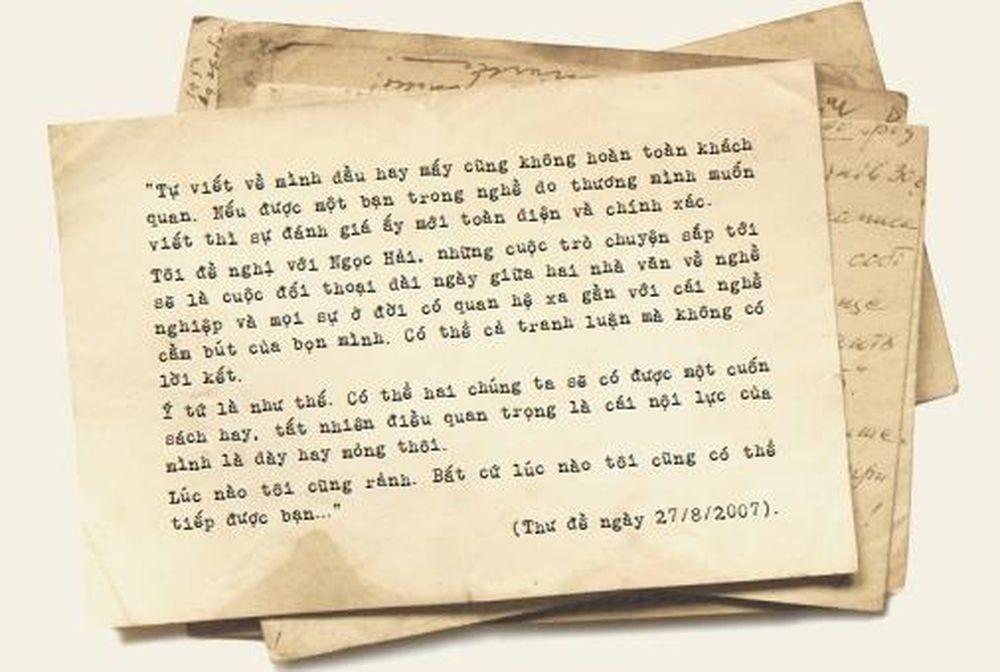 "Tự viết về mình dầu hay mấy cũng không hoàn toàn khách
quan. Nếu được một bạn trong nghề do thương mình muốn
viết thì sự đánh giá ấy mới toàn diện và chính xác.
Tôi đề nghị với Ngọc Hải, những cuộc trò chuyện sắp tới
sẽ là cuộc đối thoại dài ngày giữa hai nhà văn về nghề
nghiệp và mọi sự ở đời có quan hệ xa gần với cái nghề
cầm bút của bọn mình. Có thể cả tranh luận mà không có
lời kết.
Ý tứ là như thế. Có thể hai chúng ta sẽ có được một cuốn
sách hay, tất nhiên điều quan trọng là cái nội lực của
mình là dày hay mỏng thôi.
Lúc nào tôi cũng rảnh. Bất cứ lúc nào tôi cũng có thể
tiếp được bạn..."
(Thư đề ngày 27/8/2007).